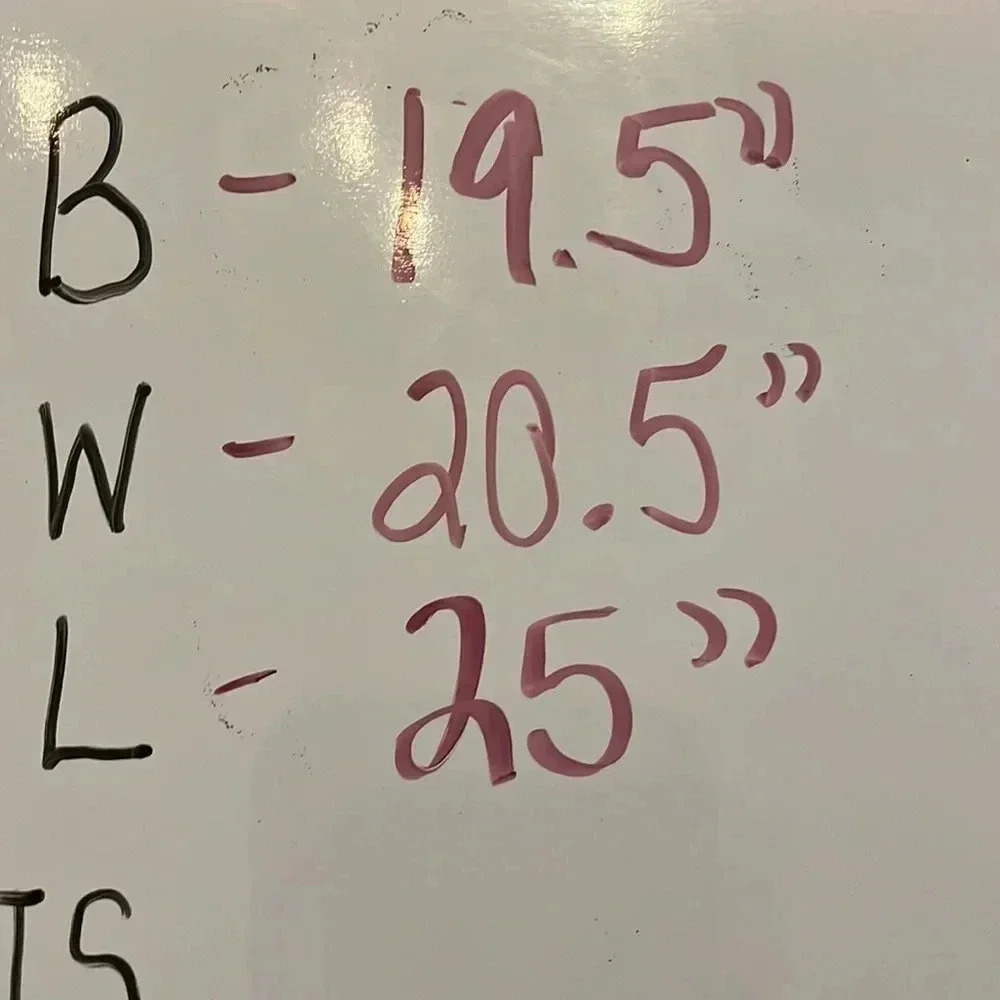 B - 19.5"
W - 20.5"
L - 25"
IS